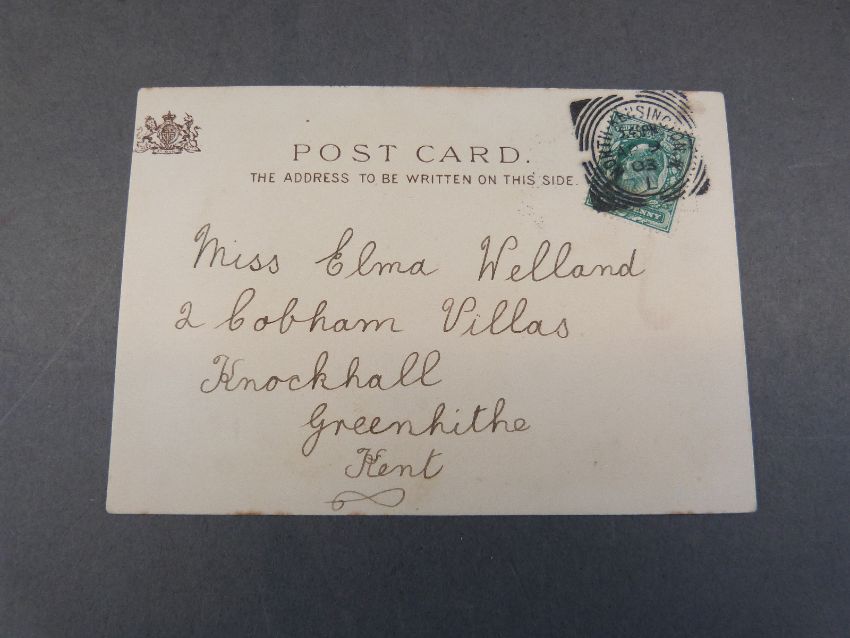 POST CARD.
THE ADDRESS TO BE WRITTEN ON THIS SIDE.
NORTH KENSINGTON.W
03
1
PENNY
Miss Elma Welland
2 Cobham Villas
Knockhall
Greenhithe
Kent